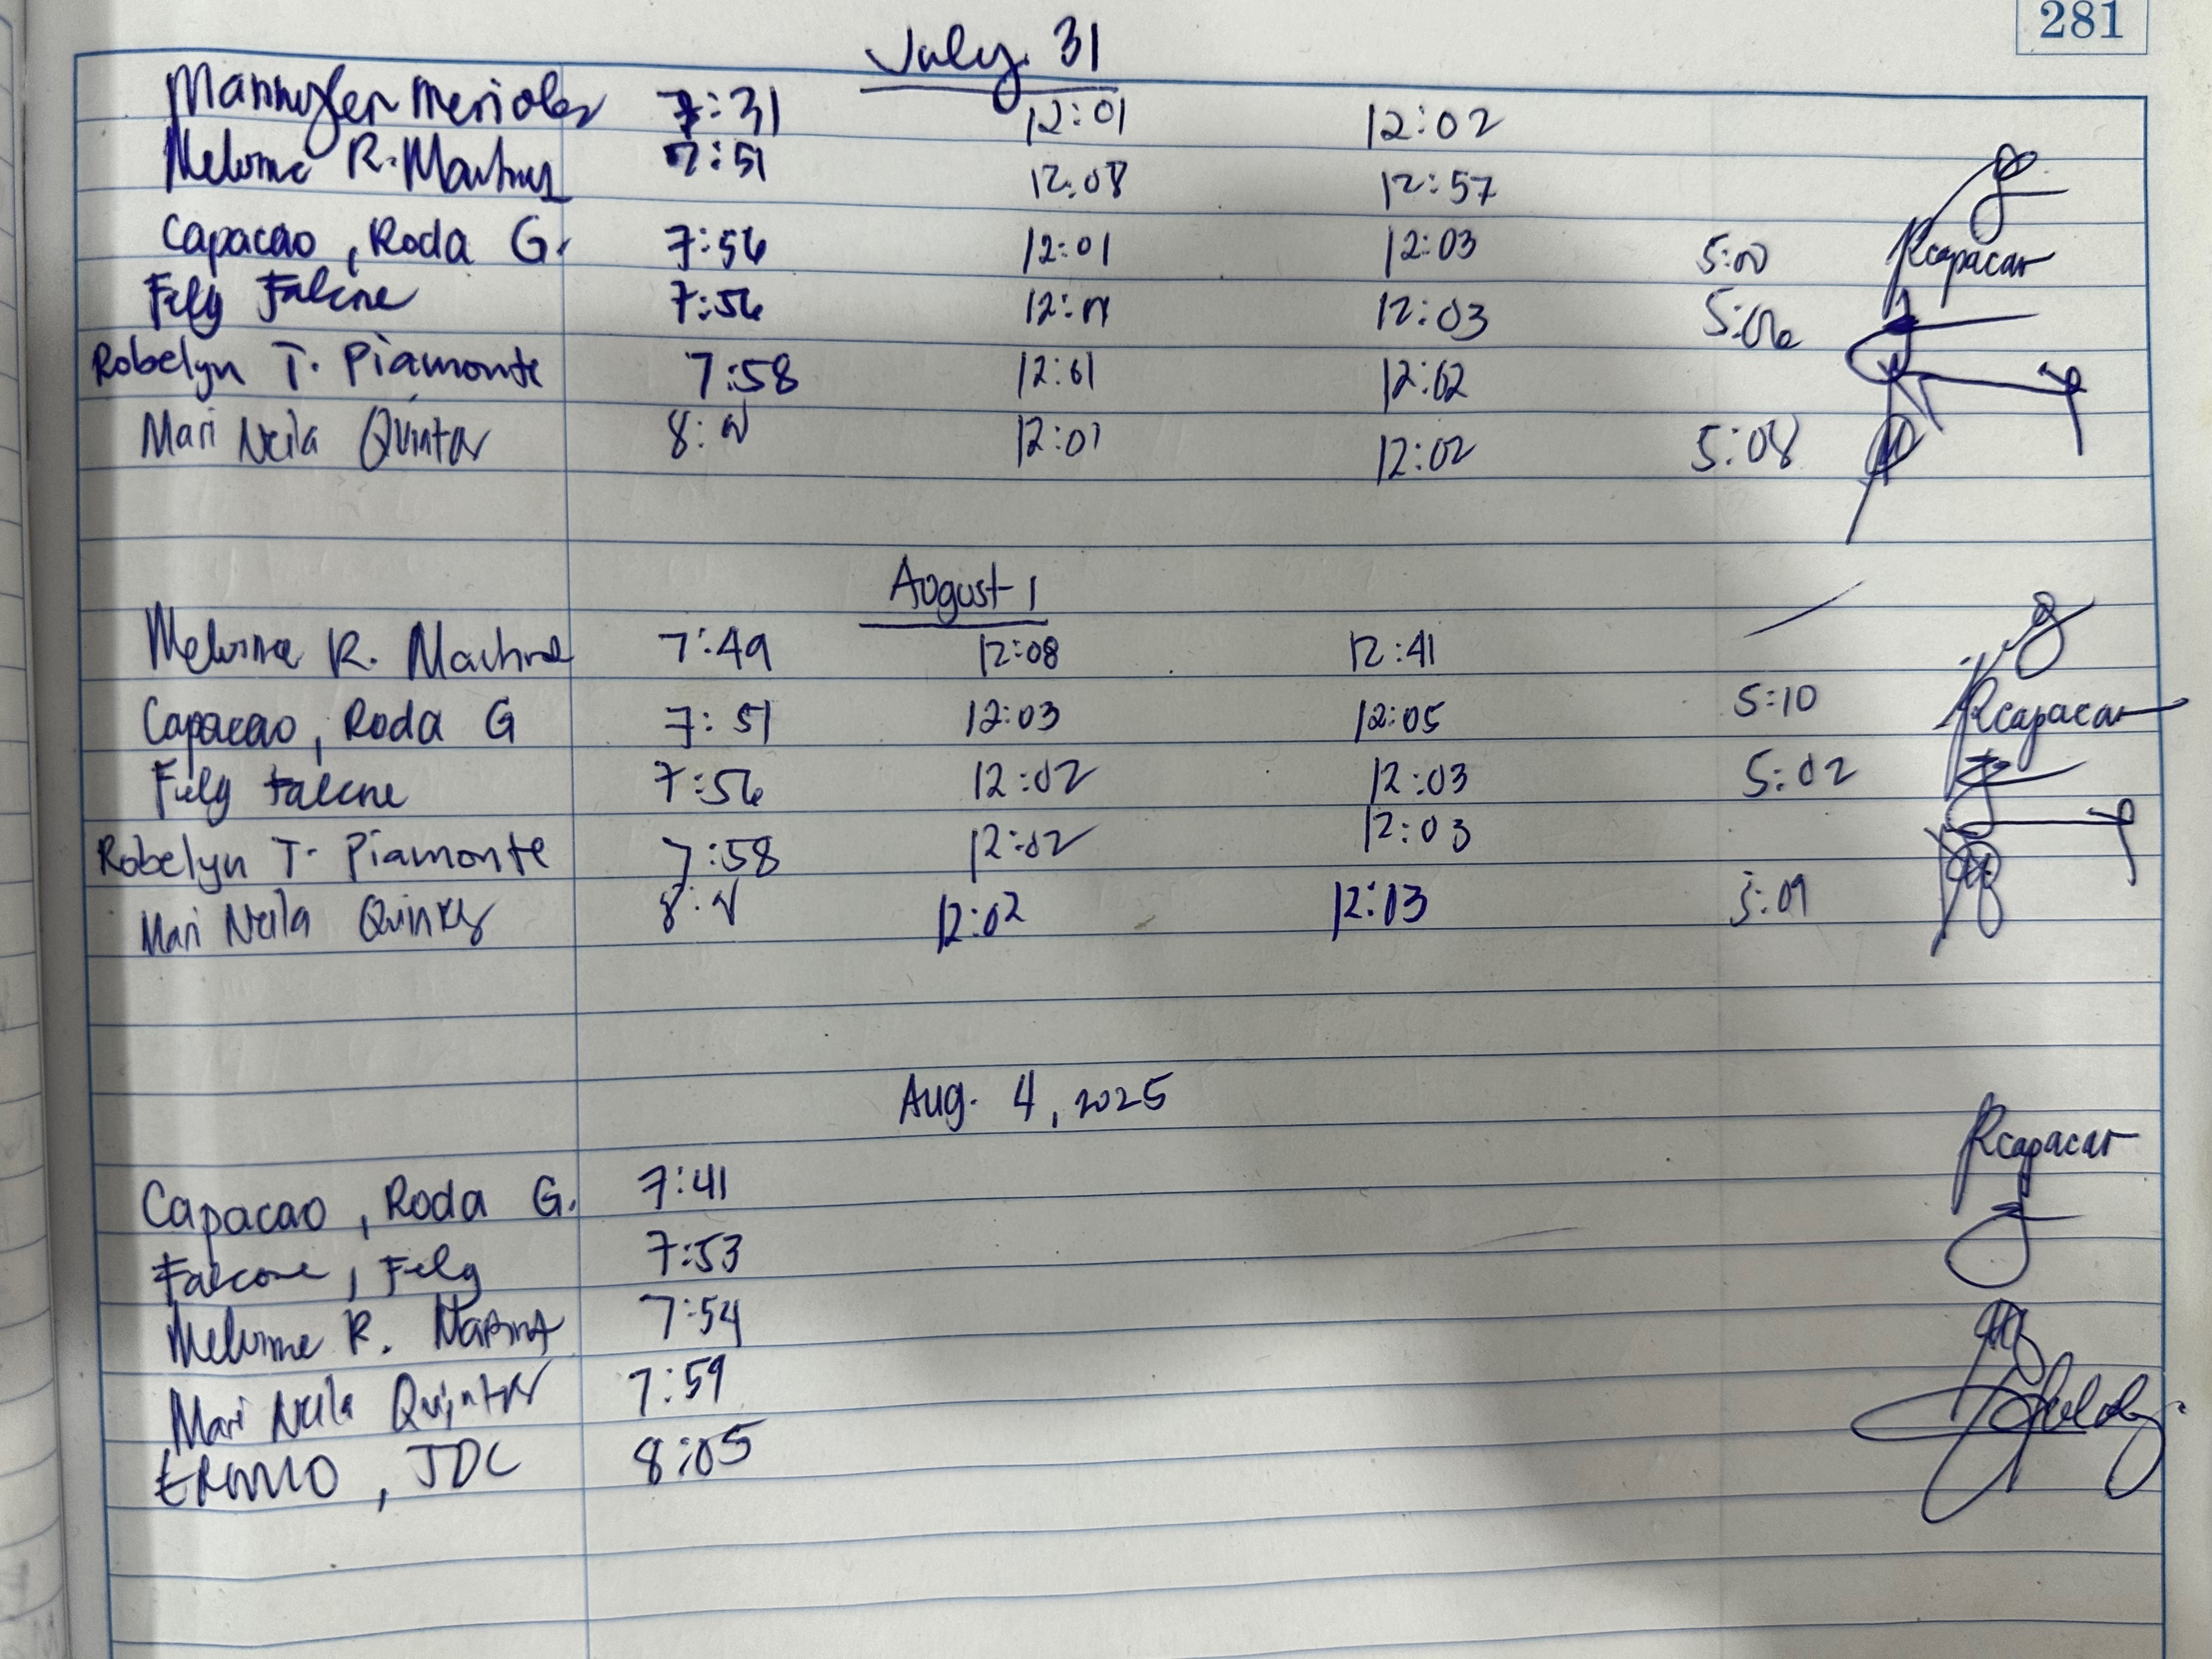 281
July 31
7:31 12:01 12:02
R. 7:51 12:08 12:57
Capacao, Roda G. 7:56 12:01 12:03 5:00 Rcapacao
Fely Falcone 7:56 12:01 12:03 5:06
Robelyn T. Piamonte 7:58 12:01 12:02
Mari Neila Quintos 12:01 12:02 5:08
August 1
R. 7:49 12:08 12:41
Capacao, Roda G 7:51 12:03 12:05 5:10 Rcapacao
Fely Falcone 7:56 12:02 12:03 5:02
Robelyn T. Piamonte 7:58 12:02 12:03
Mari Neila Quintos 12:02 12:03 5:09
Aug. 4, 2025
Capacao, Roda G. 7:41 Rcapacao
Falcone, Fely 7:53
R. 7:54
Mari Neila Quintos 7:59
JDC 8:05